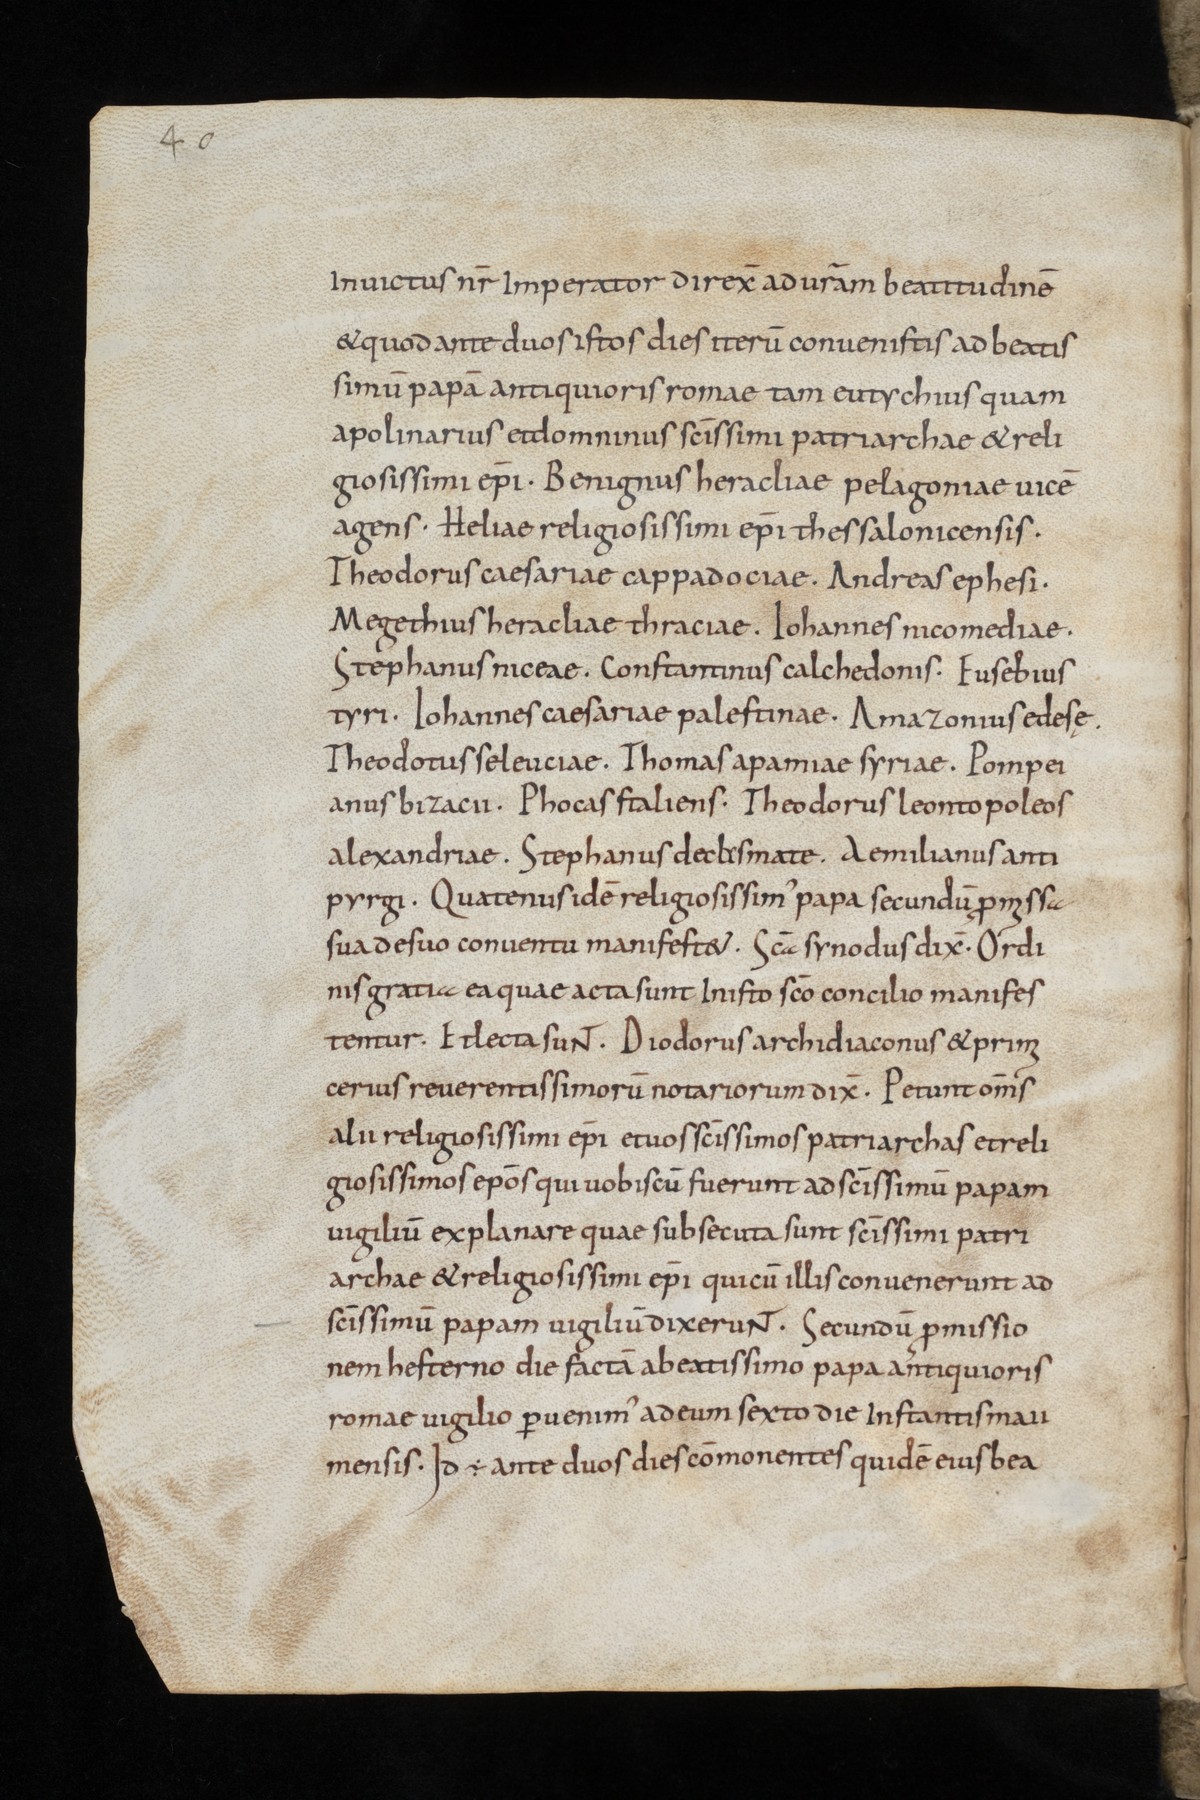 40
Inuictus nr̄ Imperator direx̄ ad urām beatitudinē
& quod ante duos istos dies iterū conuenistis ad beatis
simū papā antiquioris romae tam eutychius quam
apolinarius et domninus scīssimi patriarchae & reli
giosissimi ep̄i. Benignus heracliae pelagoniae uicē
agens. Heliae religiosissimi ep̄i thessalonicensis.
Theodorus caesariae cappadociae. Andreas ephesi.
Megethius heracliae thraciae. Iohannes nicomediae.
Stephanus niceae. Constantinus calchedonis. Eusebius
tyri. Iohannes caesariae palestinae. Amazonius edesę.
Theodotus seleuciae. Thomas apamiae syriae. Pompei
anus bizacii. Phocas staliens. Theodorus leontopoleos
alexandriae. Stephanus declesmate. Aemilianus anti
pyrgi. Quatenus idē religiosissim' papa secundū ꝓmissa
sua de suo conuentu manifest&. Scā synodus dix̄. Ordi
nis gratia ea quae acta sunt In isto scō concilio manifes
tentur. Et lecta suNT. Diodorus archidiaconus & primi
cerius reuerentissimorū notariorum dix̄. Petunt om̄s
alii religiosissimi ep̄i et uos scīssimos patriarchas et reli
giosissimos epōs qui uobiscū fuerunt ad scīssimū papam
uigiliū explanare quae subsecuta sunt scīssimi patri
archae & religiosissimi ep̄i qui cū illis conuenerunt ad
scīssimū papam uigiliū dixeruNT. Secundū ꝓmissio
nem hesterno die factā a beatissimo papa antiquioris
romae uigilio ꝑuenim' ad eum sexto die Instantis maii
mensis. Id ÷ ante duos dies cōmonentes quidē eius bea